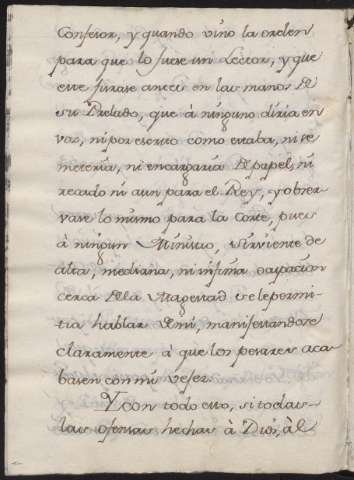 Confesor, y quando vino la orden
para que lo fuese un Lector, y que
este jurase antes en las manos de
su Prelado, que à ninguno diria en
voz, ni por escrito como estaba, ni se
meteria, ni encargaria de papel, ni
recado ni aun para el Rey, y obser-
vase lo mismo para la Corte, pues
à ningun Ministro, Sirviente de
alta, mediana, ni infima ocupacion
cerca de la Magestad se le permi-
tia hablar de mi, manifestandose
claramente à que los pesares aca-
basen con mi vejez.
Y con todo esto, si todas
las ofensas hechas à Dios, à l